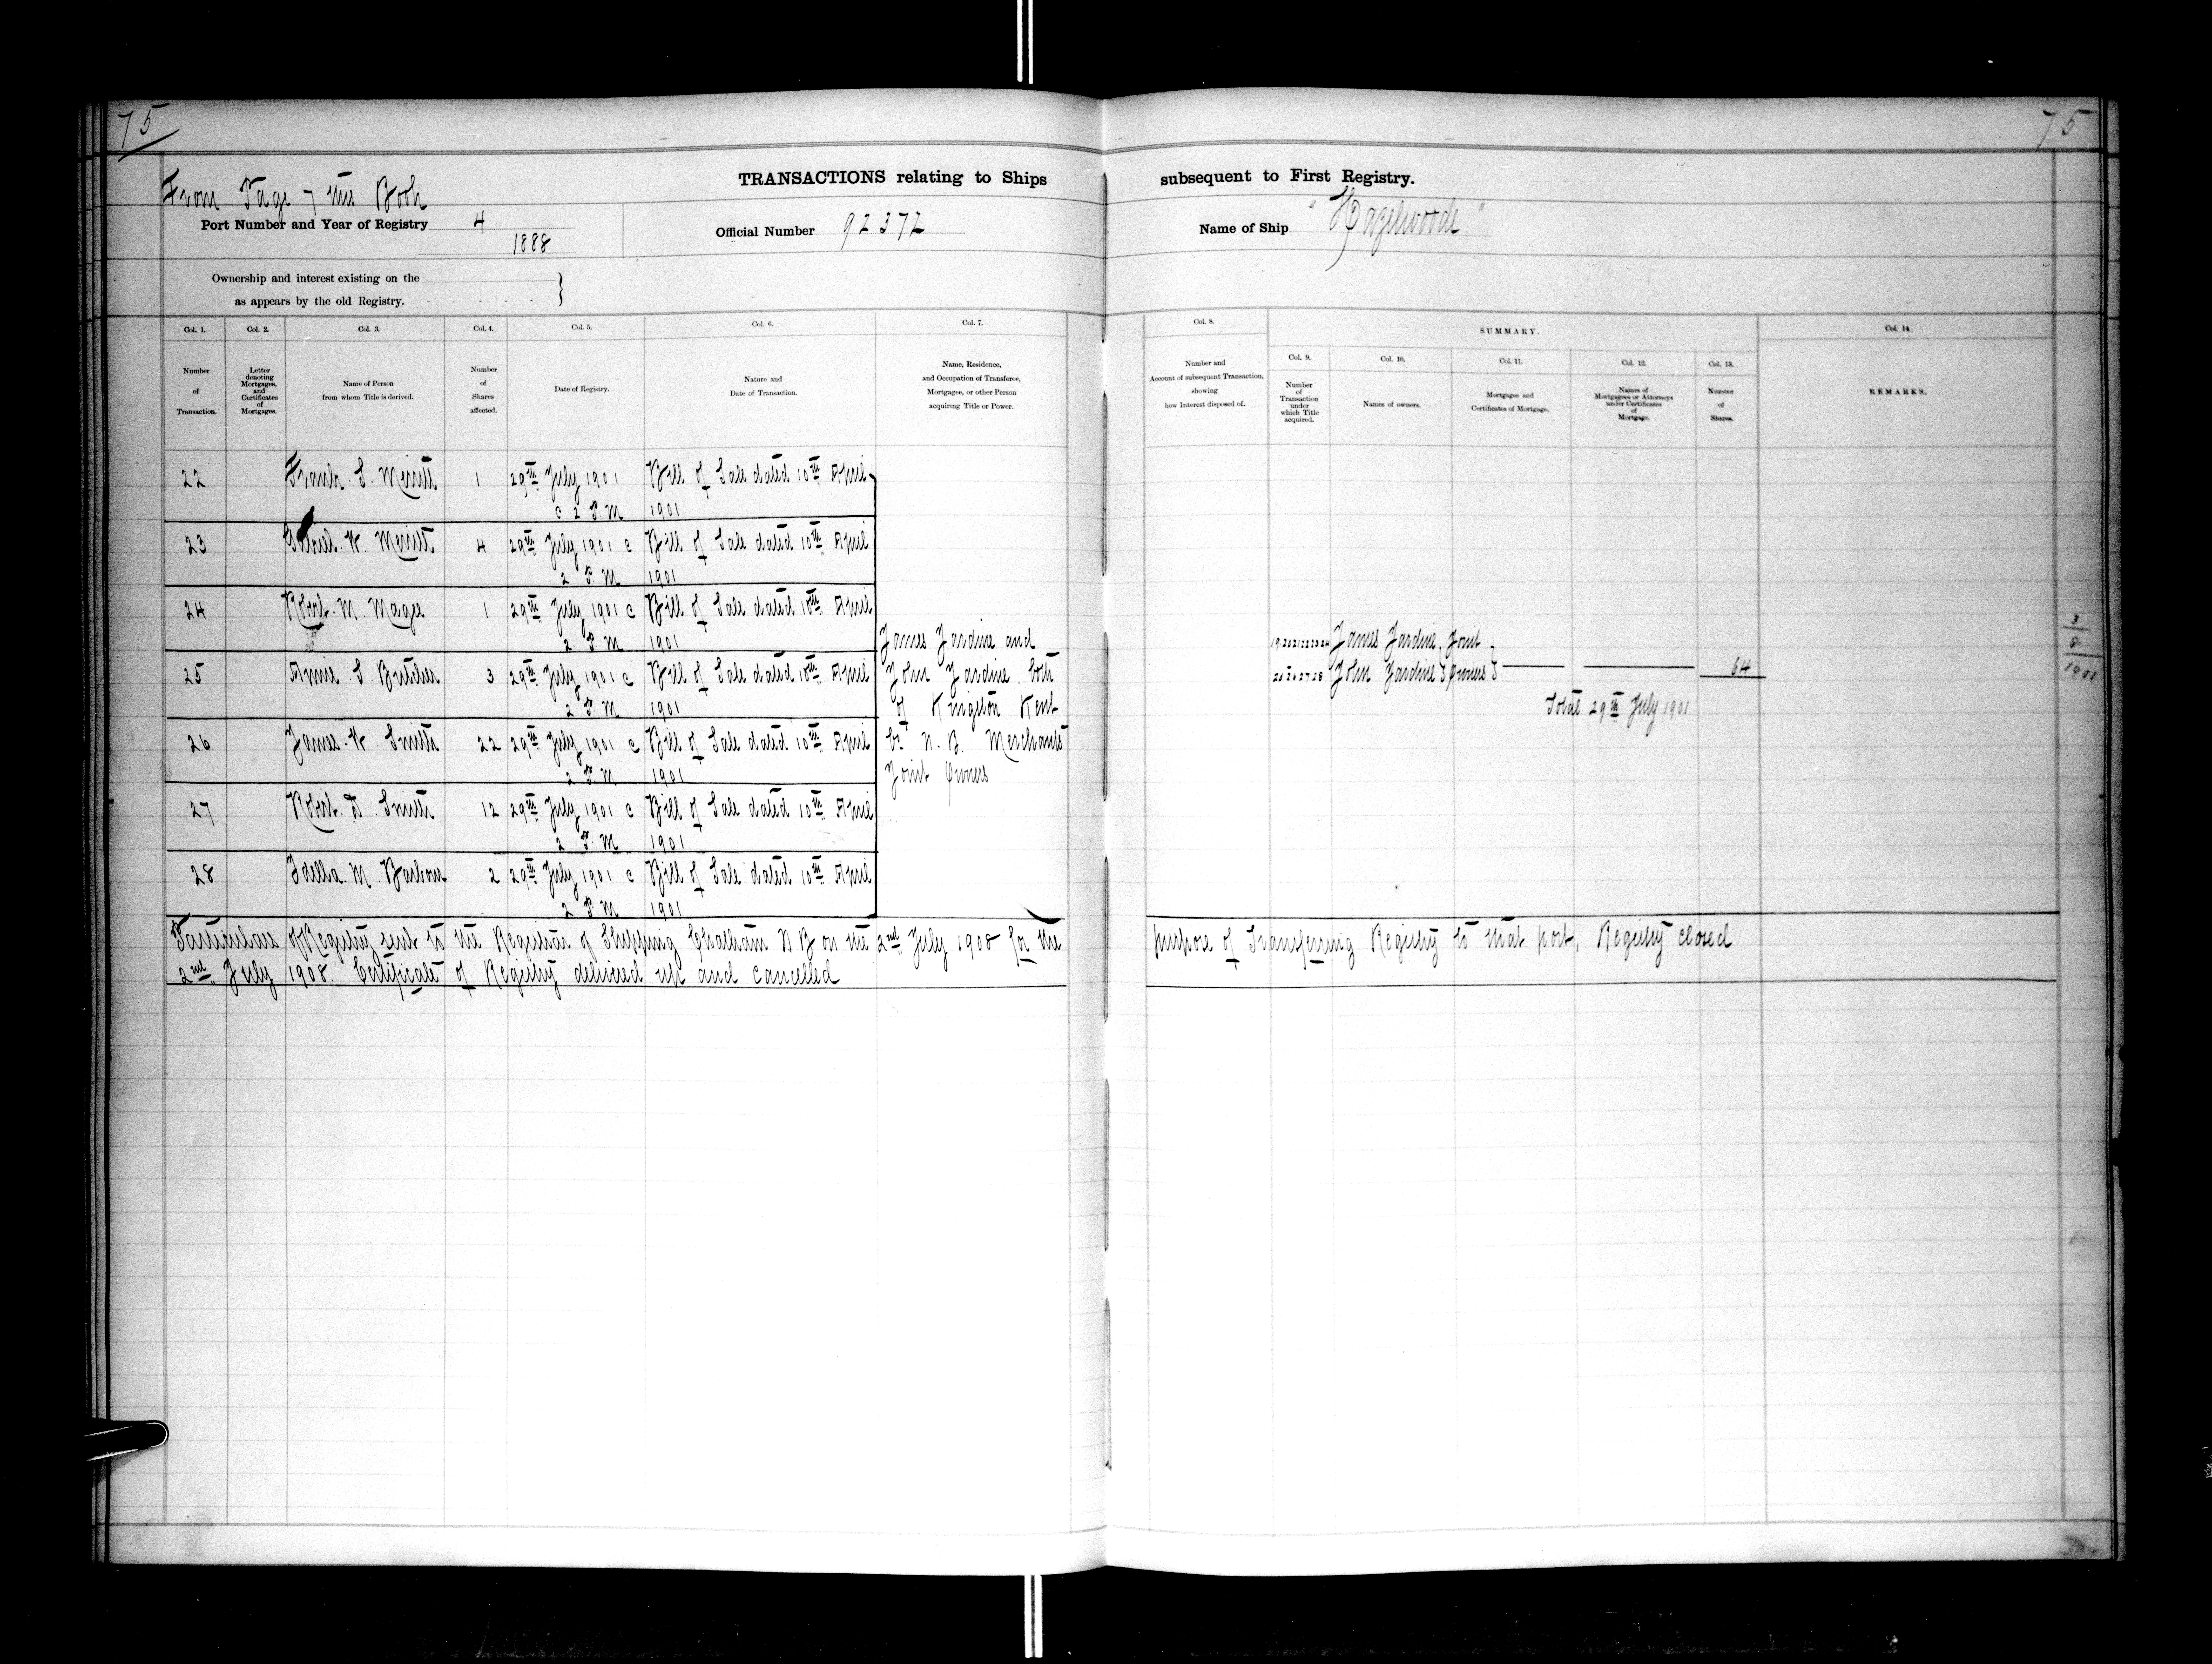 75
75
From Page 7 this Book
TRANSACTIONS relating to Ships subsequent to First Registry.
Port Number and Year of Registry 4
1888
Official Number 92372
Name of Ship "Hazelwoode"
Ownership and interest existing on the
as appears by the old Registry. }
Col. 1.
Number
of
Transaction.
Col. 2.
Letter
denoting
Mortgages,
and
Certificates
of
Mortgages.
Col. 3.
Name of Person
from whom Title is derived.
Col. 4.
Number
of
Shares
affected.
Col. 5.
Date of Registry.
Col. 6.
Nature and
Date of Transaction.
Col. 7.
Name, Residence,
and Occupation of Transferee,
Mortgagee, or other Person
acquiring Title or Power.
Col. 8.
Number and
Account of subsequent Transaction,
showing
how Interest disposed of.
SUMMARY.
Col. 9.
Number
of
Transaction
under
which Title
acquired.
Col. 10.
Names of owners.
Col. 11.
Mortgages and
Certificates of Mortgage.
Col. 12.
Names of
Mortgagees or Attorneys
under Certificates
of
Mortgage.
Col. 13.
Number
of
Shares.
Col. 14.
REMARKS.
22 Frank S. Merritt 1 29th July 1901 Bill of Sale dated 10th April
c 2 P.M 1901
23 Gabriel W. Merritt 4 29th July 1901 c Bill of Sale dated 10th April
2 P.M 1901
24 Robt. M. Magee 1 29th July 1901 c Bill of Sale dated 10th April
2 P.M 1901
25 Annie S. 3 29th July 1901 c Bill of Sale dated 10th April
2 P.M 1901
26 James W. Smith 22 29th July 1901 c Bill of Sale dated 10th April
2 P.M 1901
27 Robt. D. Smith 12 29th July 1901 c Bill of Sale dated 10th April
2 P.M 1901
28 Idella M. Barbour 2 29th July 1901 c Bill of Sale dated 10th April
2 P.M 1901
James Jardine and
John Jardine both
of Kingston Kent
Co N.B. Merchants
Joint Owners
19.20.21.22.23.24 James Jardine, Joint
25 26 27 28 John Jardine } Owners } 64
Total 29th July 1901
3
8
1901
Particulars of Registry sent to the Registrar of Shipping Chatham N B on the 2nd July 1908 for the purpose of Transferring Registry to that port, Registry closed
2nd July 1908. Certificate of Registry delivered up and cancelled